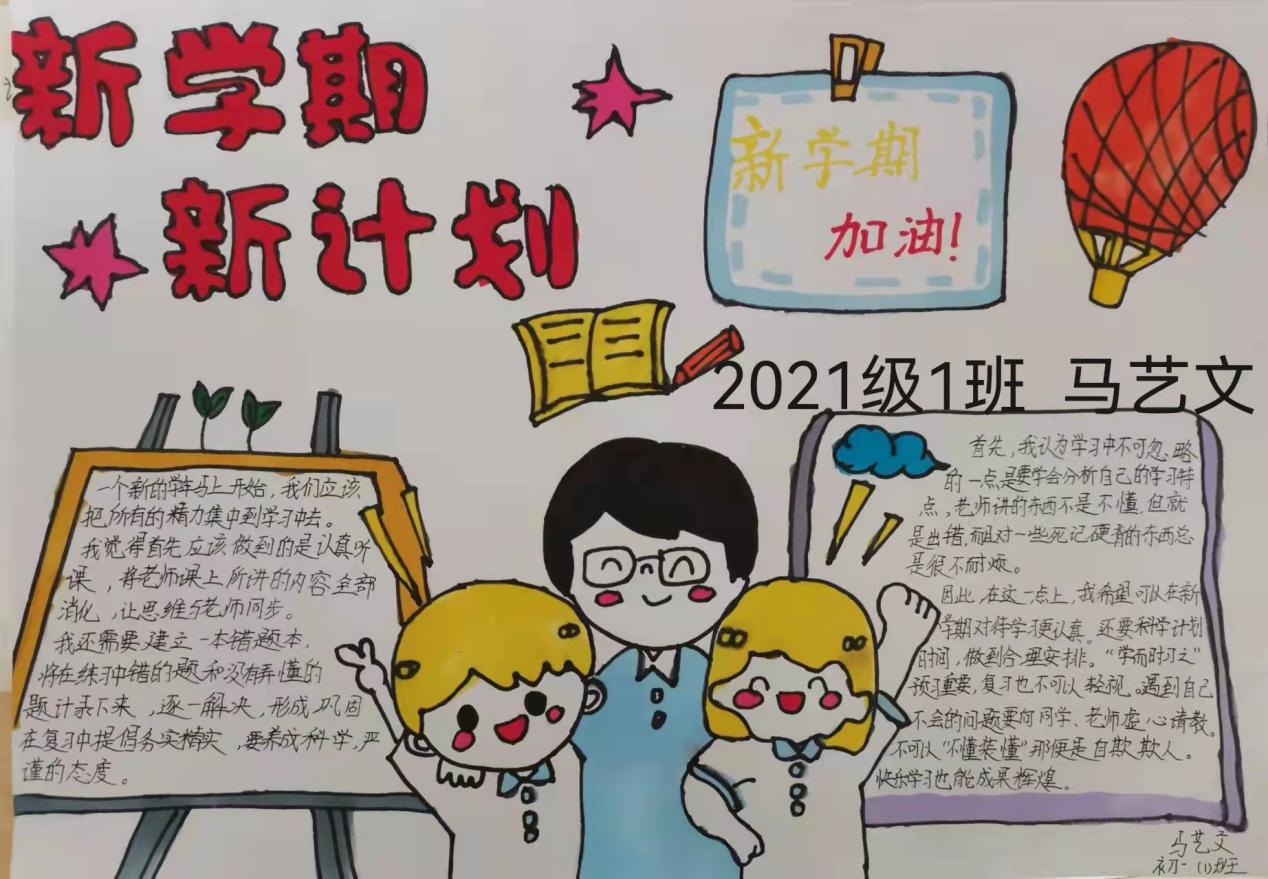 新学期
新计划
新学期
加油!
2021级1班 马艺文
一个新的学年马上开始，我们应该
把所有的精力集中到学习中去。
我觉得首先应该做到的是认真听
课，将老师课上所讲的内容全部
消化，让思维与老师同步。
我还需要建立一本错题本，
将在练习中错的题和没有弄懂的
题计录下来，逐一解决，形成巩固
在复习中提倡务实精实，要养成科学，严
谨的态度。
首先，我认为学习中不可忽略
的一点是要学会分析自己的学习特
点，老师讲的东西不是不懂，但就
是出错，而且对一些死记硬背的东西总
是很不耐烦。
因此，在这一点上，我希望可以在新
学期对待学习更认真。还要科学计划
时间，做到合理安排。“学而时习之”
预习重要，复习也不可以轻视。遇到自己
不会的问题要向同学、老师虚心请教。
不可以“不懂装懂”那便是自欺欺人。
快乐学习也能成果辉煌。
马艺文
初一(1)班